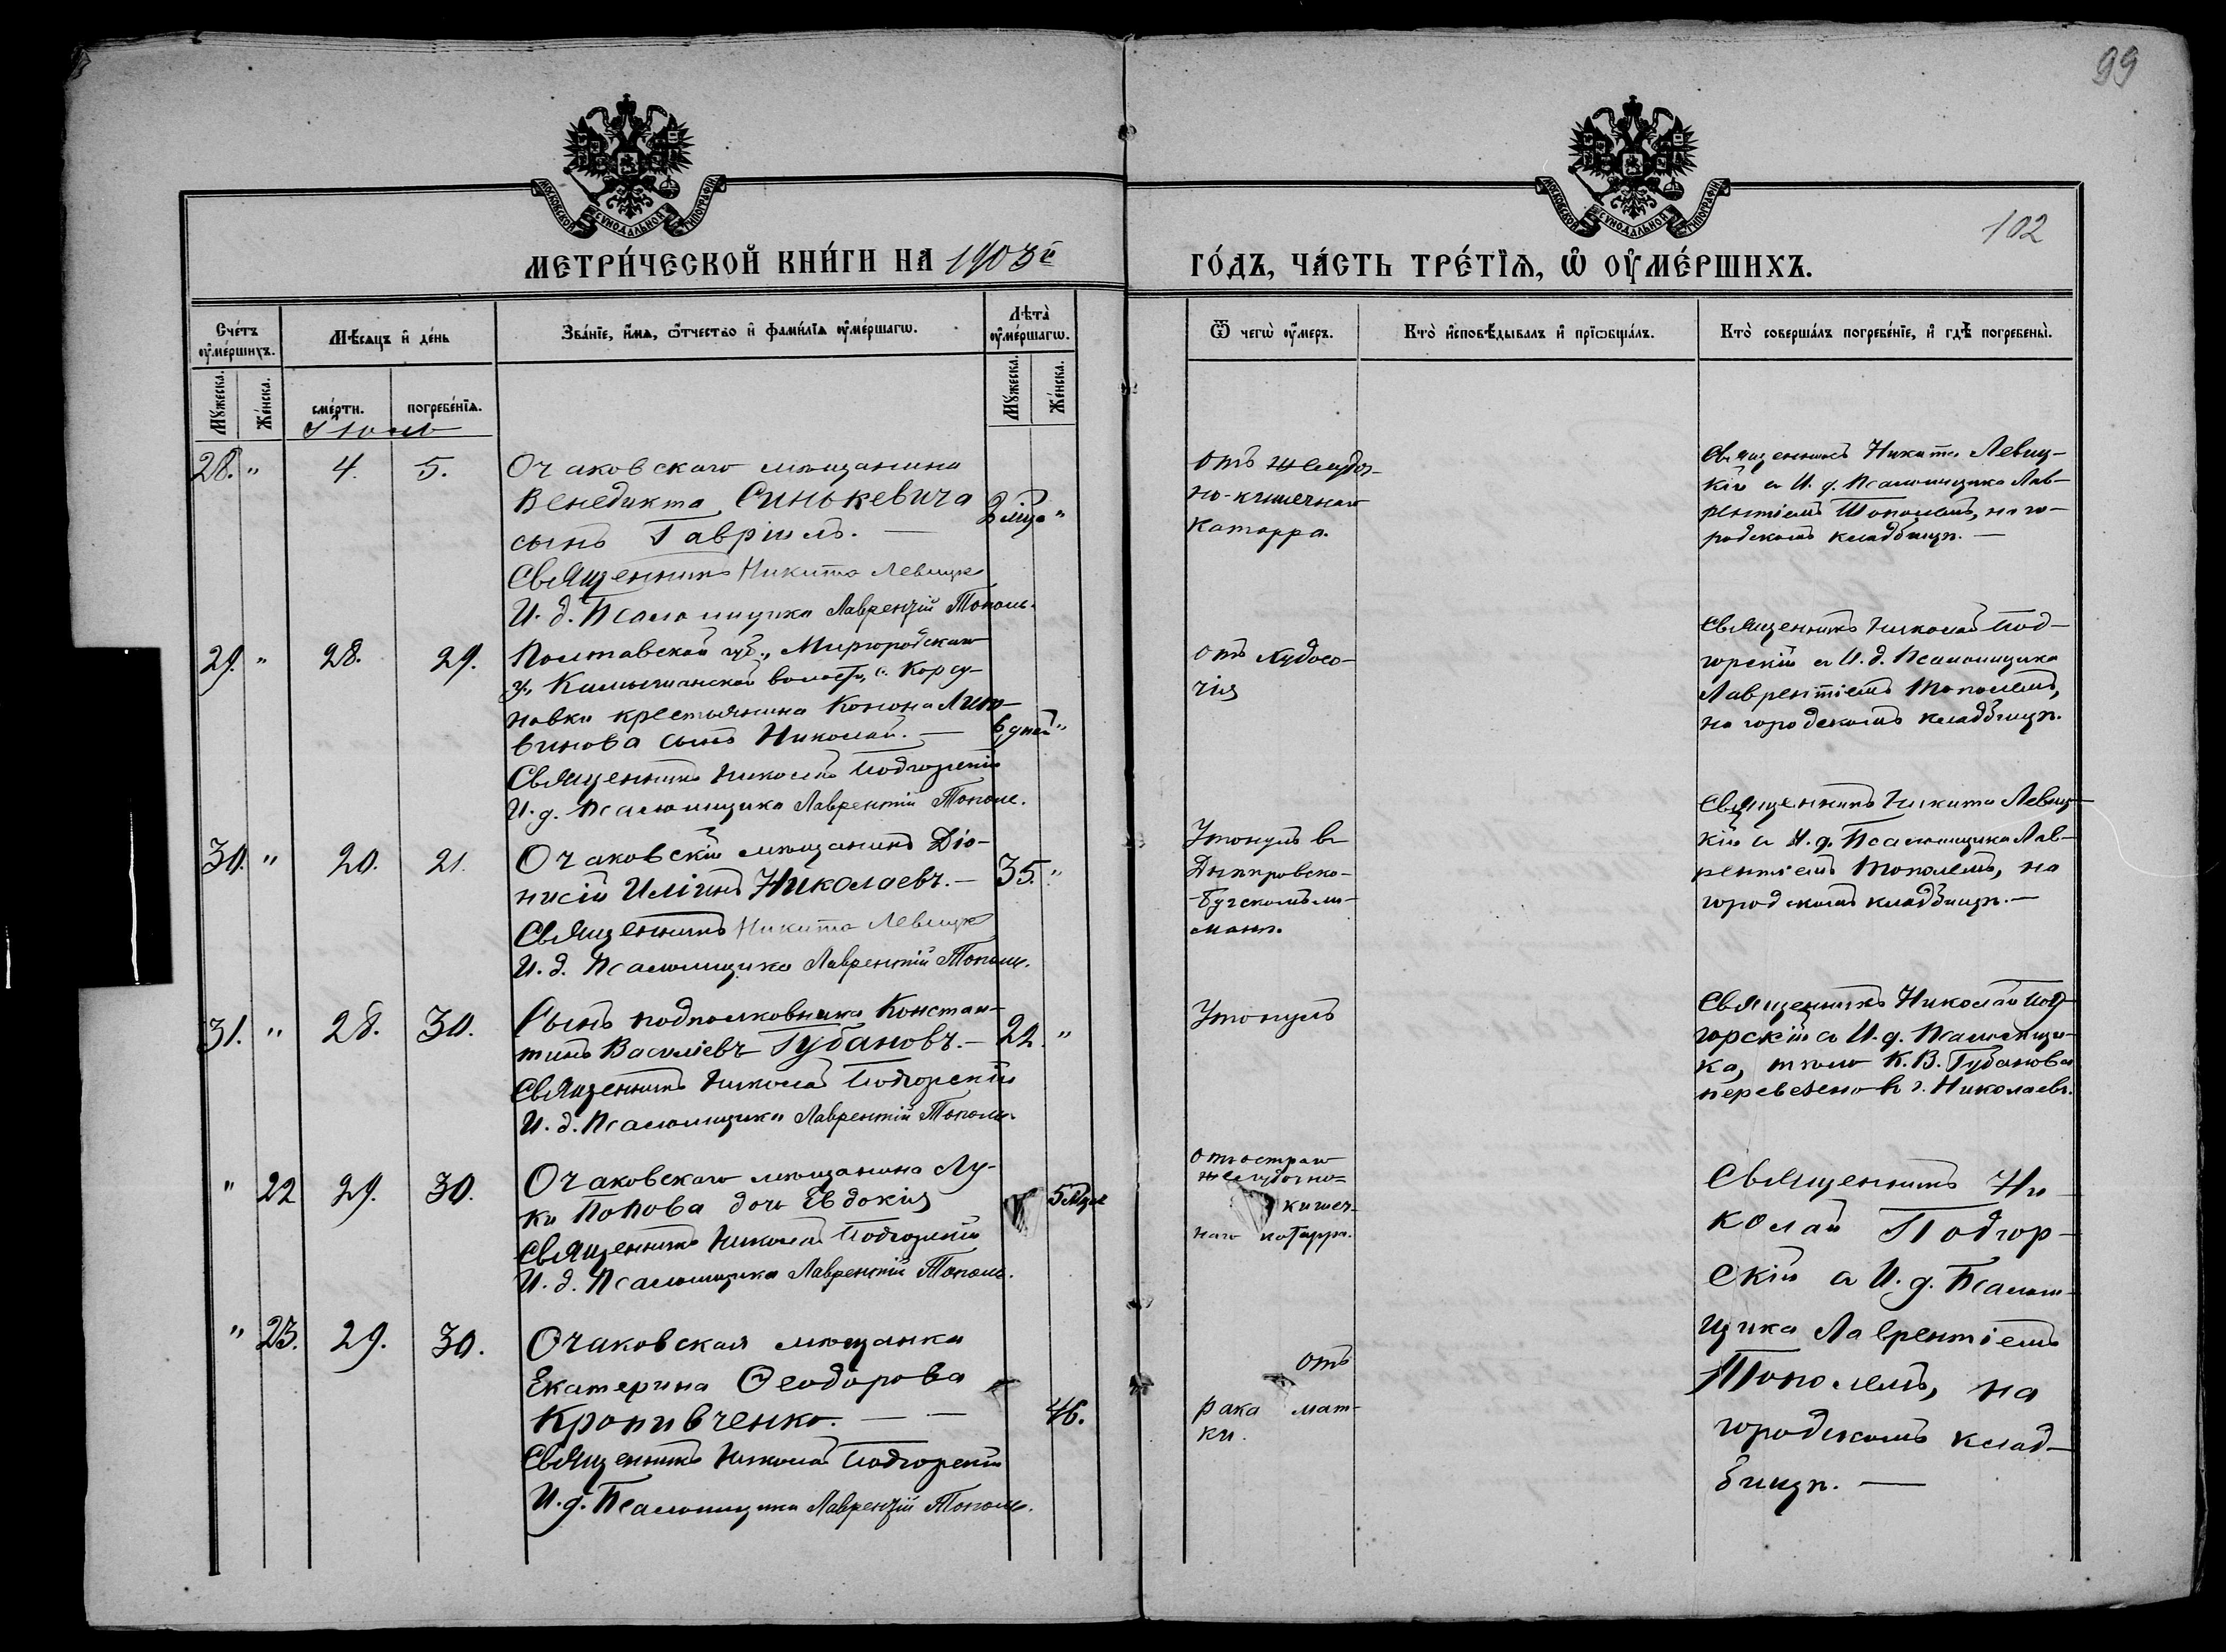 99
102
МОСКОВСКОЙ СѴНОДАЛЬНОЙ ТИПОГРАФІИ
МОСКОВСКОЙ СѴНОДАЛЬНОЙ ТИПОГРАФІИ
МЕТРИ́ЧЕСКОЙ КНИ́ГИ НА 1903й
ГО́ДЪ, ЧА́СТЬ ТРЕ́ТЇѦ, Ѡ҆ ОУ҆МЕ́РШИХЪ.
Сче́тъ оу҆ме́ршихъ.
Мѣ́сѧцъ и҆ де́нь
Зва́нїе, и҆́мѧ, ѻ҆́тчество и҆ фами́лїѧ оу҆ме́ршагѡ.
Лѣ́та оу҆ме́ршагѡ.
Ѿ чегѡ̀ оу҆́меръ.
Кто̀ и҆сповѣ́дывалъ и҆ прїѡбща́лъ.
Кто̀ соверша́лъ погребе́нїе, и҆ гдѣ̀ погребены̀.
Мꙋ́жеска.
Же́нска.
сме́рти.
погребе́нїѧ.
Мꙋ́жеска.
Же́нска.
Іюль
28. " 4. 5.
Очаковскаго мѣщанина
Венедикта Синькевича
сынъ Гавріилъ. —
"
Священникъ Никита Левицк
И. д. Псаломщика Лаврентій Тополь.
отъ желудоч-
но-кишечнаго
катарра.
Священникъ Никита Левиц-
кій съ И. д. Псаломщика Лав-
рентіемъ Тополемъ, на го-
родскомъ кладбищѣ. —
29. " 28. 29.
Полтавской губ., Миргородскаго
у., Камышанской волости, с. Корсу-
новки крестьянина Конона Лит-
винова сынъ Николай. —
6 дней "
Священникъ Николай Подгорскій
И. д. Псаломщика Лаврентій Тополь.
отъ худосо-
чія
Священникъ Николай Под-
горскій съ И. д. Псаломщика
Лаврентіемъ Тополемъ,
на городскомъ кладбищѣ.
30. " 20. 21.
Очаковскій мѣщанинъ Діо-
нисій Иліинъ Николаевъ. —
35. "
Священникъ Никита Левицк
И. д. Псаломщика Лаврентій Тополь.
Утонулъ въ
Днѣпровско-
-Бугскомъ ли-
манѣ.
Священникъ Никита Левиц-
кій съ И. д. Псаломщика Лав-
рентіемъ Тополемъ, на
городскомъ кладбищѣ. —
31. " 28. 30.
Сынъ подполковника Констан-
тинъ Василіевъ Губановъ. —
22. "
Священникъ Николай Подгорскій
И. д. Псаломщика Лаврентій Тополь.
Утонулъ
Священникъ Николай Под-
горскій съ И. д. Псаломщи-
ка, тѣло К. В. Губанова
перевезено въ г. Николаевъ.
" 22 29. 30.
Очаковскаго мѣщанина Лу-
ки Попова дочь Евдокія
5 мцв
Священникъ Николай Подгорскій
И. д. Псаломщика Лаврентій Тополь.
отъ остраго
желудочно=
кишеч-
наго катарра.
Священникъ Ни-
колай Подгор-
скій съ И. д. Псалом-
щика Лаврентіемъ
Тополемъ, на
городскомъ клад-
бищѣ. —
" 23. 29. 30.
Очаковская мѣщанка
Екатерина Ѳеодорова
Кропивченко. — —
46.
Священникъ Николай Подгорскій
И. д. Псаломщика Лаврентій Тополь.
отъ
рака мат-
ки.